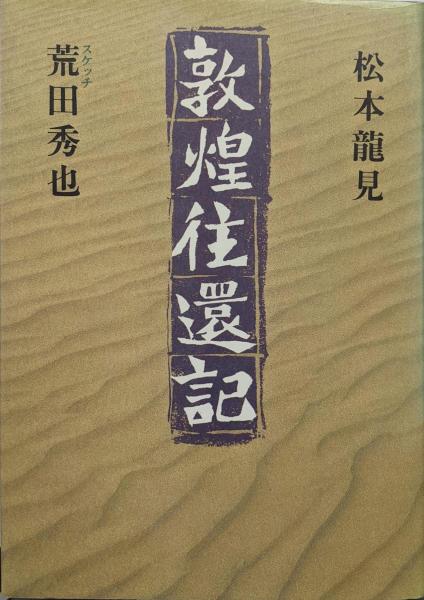 松本龍見
敦煌往還記
スケッチ
荒田秀也